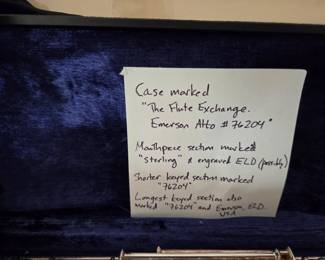 Case marked
"The Flute Exchange.
Emerson Alto #76204"
Mouthpiece section marked
"Sterling" & engraved ELD (possibly)
Shorter keyed section marked
"76204"
Longest keyed section also
marked "76204" and Emerson, ELD.
USA